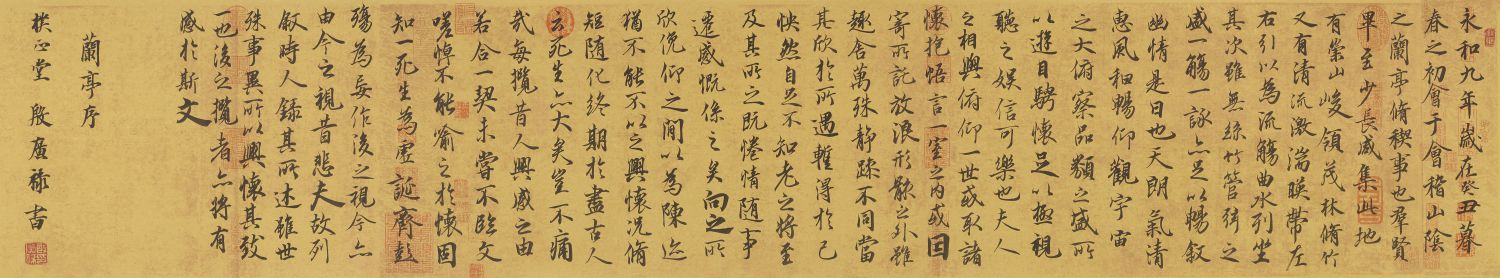 永和九年歲在癸丑暮
春之初會于會稽山陰
之蘭亭脩稧事也羣賢
畢至少長咸集此地
有崇山峻領茂林脩竹
又有清流激湍暎帶左
右引以為流觴曲水列坐
其次雖無絲竹管弦之
盛一觴一詠亦足以暢敘
幽情是日也天朗氣清
惠風和暢仰觀宇宙
之大俯察品類之盛所
以遊目騁懷足以極視
聽之娛信可樂也夫人
之相與俯仰一世或取諸
懷抱悟言一室之內或因
寄所託放浪形骸之外雖
趣舍萬殊靜躁不同當
其欣於所遇暫得於己
怏然自足不知老之將至
及其所之既惓情隨事
遷感慨係之矣向之所
欣俛仰之間以為陳迹
猶不能不以之興懷況脩
短隨化終期於盡古人
云死生亦大矣豈不痛
哉每攬昔人興感之由
若合一契未嘗不臨文
嗟悼不能喻之於懷固
知一死生為虛誕齊彭
殤為妄作後之視今亦
由今之視昔悲夫故列
敘時人錄其所述雖世
殊事異所以興懷其致
一也後之攬者亦將有
感於斯文
蘭亭序
堂 殷 書